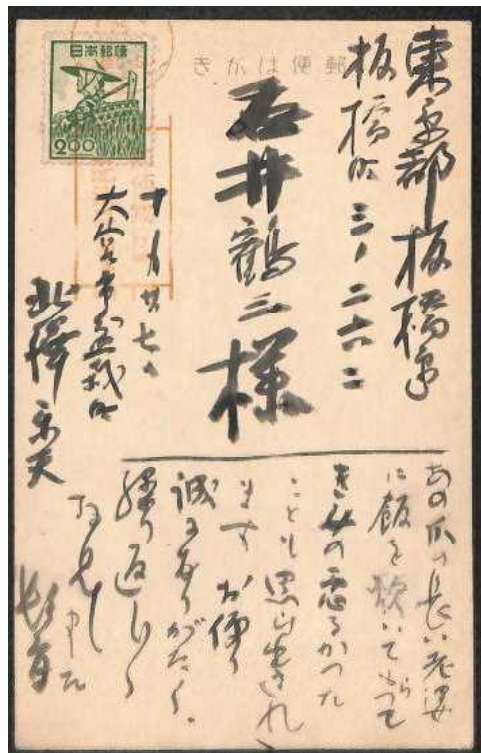 日本郵便
200
郵便はかき
東京都板橋区
板橋町三ノ二六二
石井鶴三様
十月廿七日
大宮市盆栽町
北澤楽天
あの爪の長い老婆
に飯を炊いてもらつて
きみの悪るかつた
ことも思い出され
ます お便り
誠にありがたく、
繰り返し〱
拝見